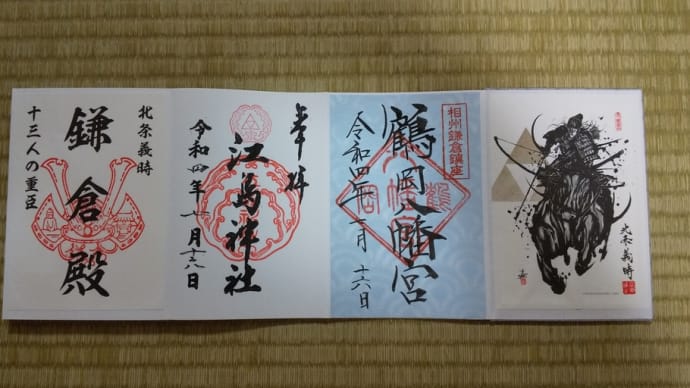 北条義時
相州鎌倉鎮座
鶴岡八幡宮
令和四年 月十六日
奉拝
江島神社
令和四年 月十六日
北条義時
鎌倉殿
十三人の重臣